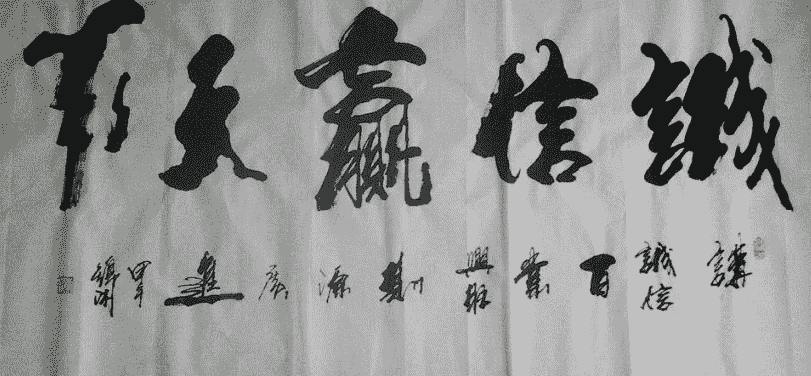 誠信贏天下
講誠信百業興旺財源廣進